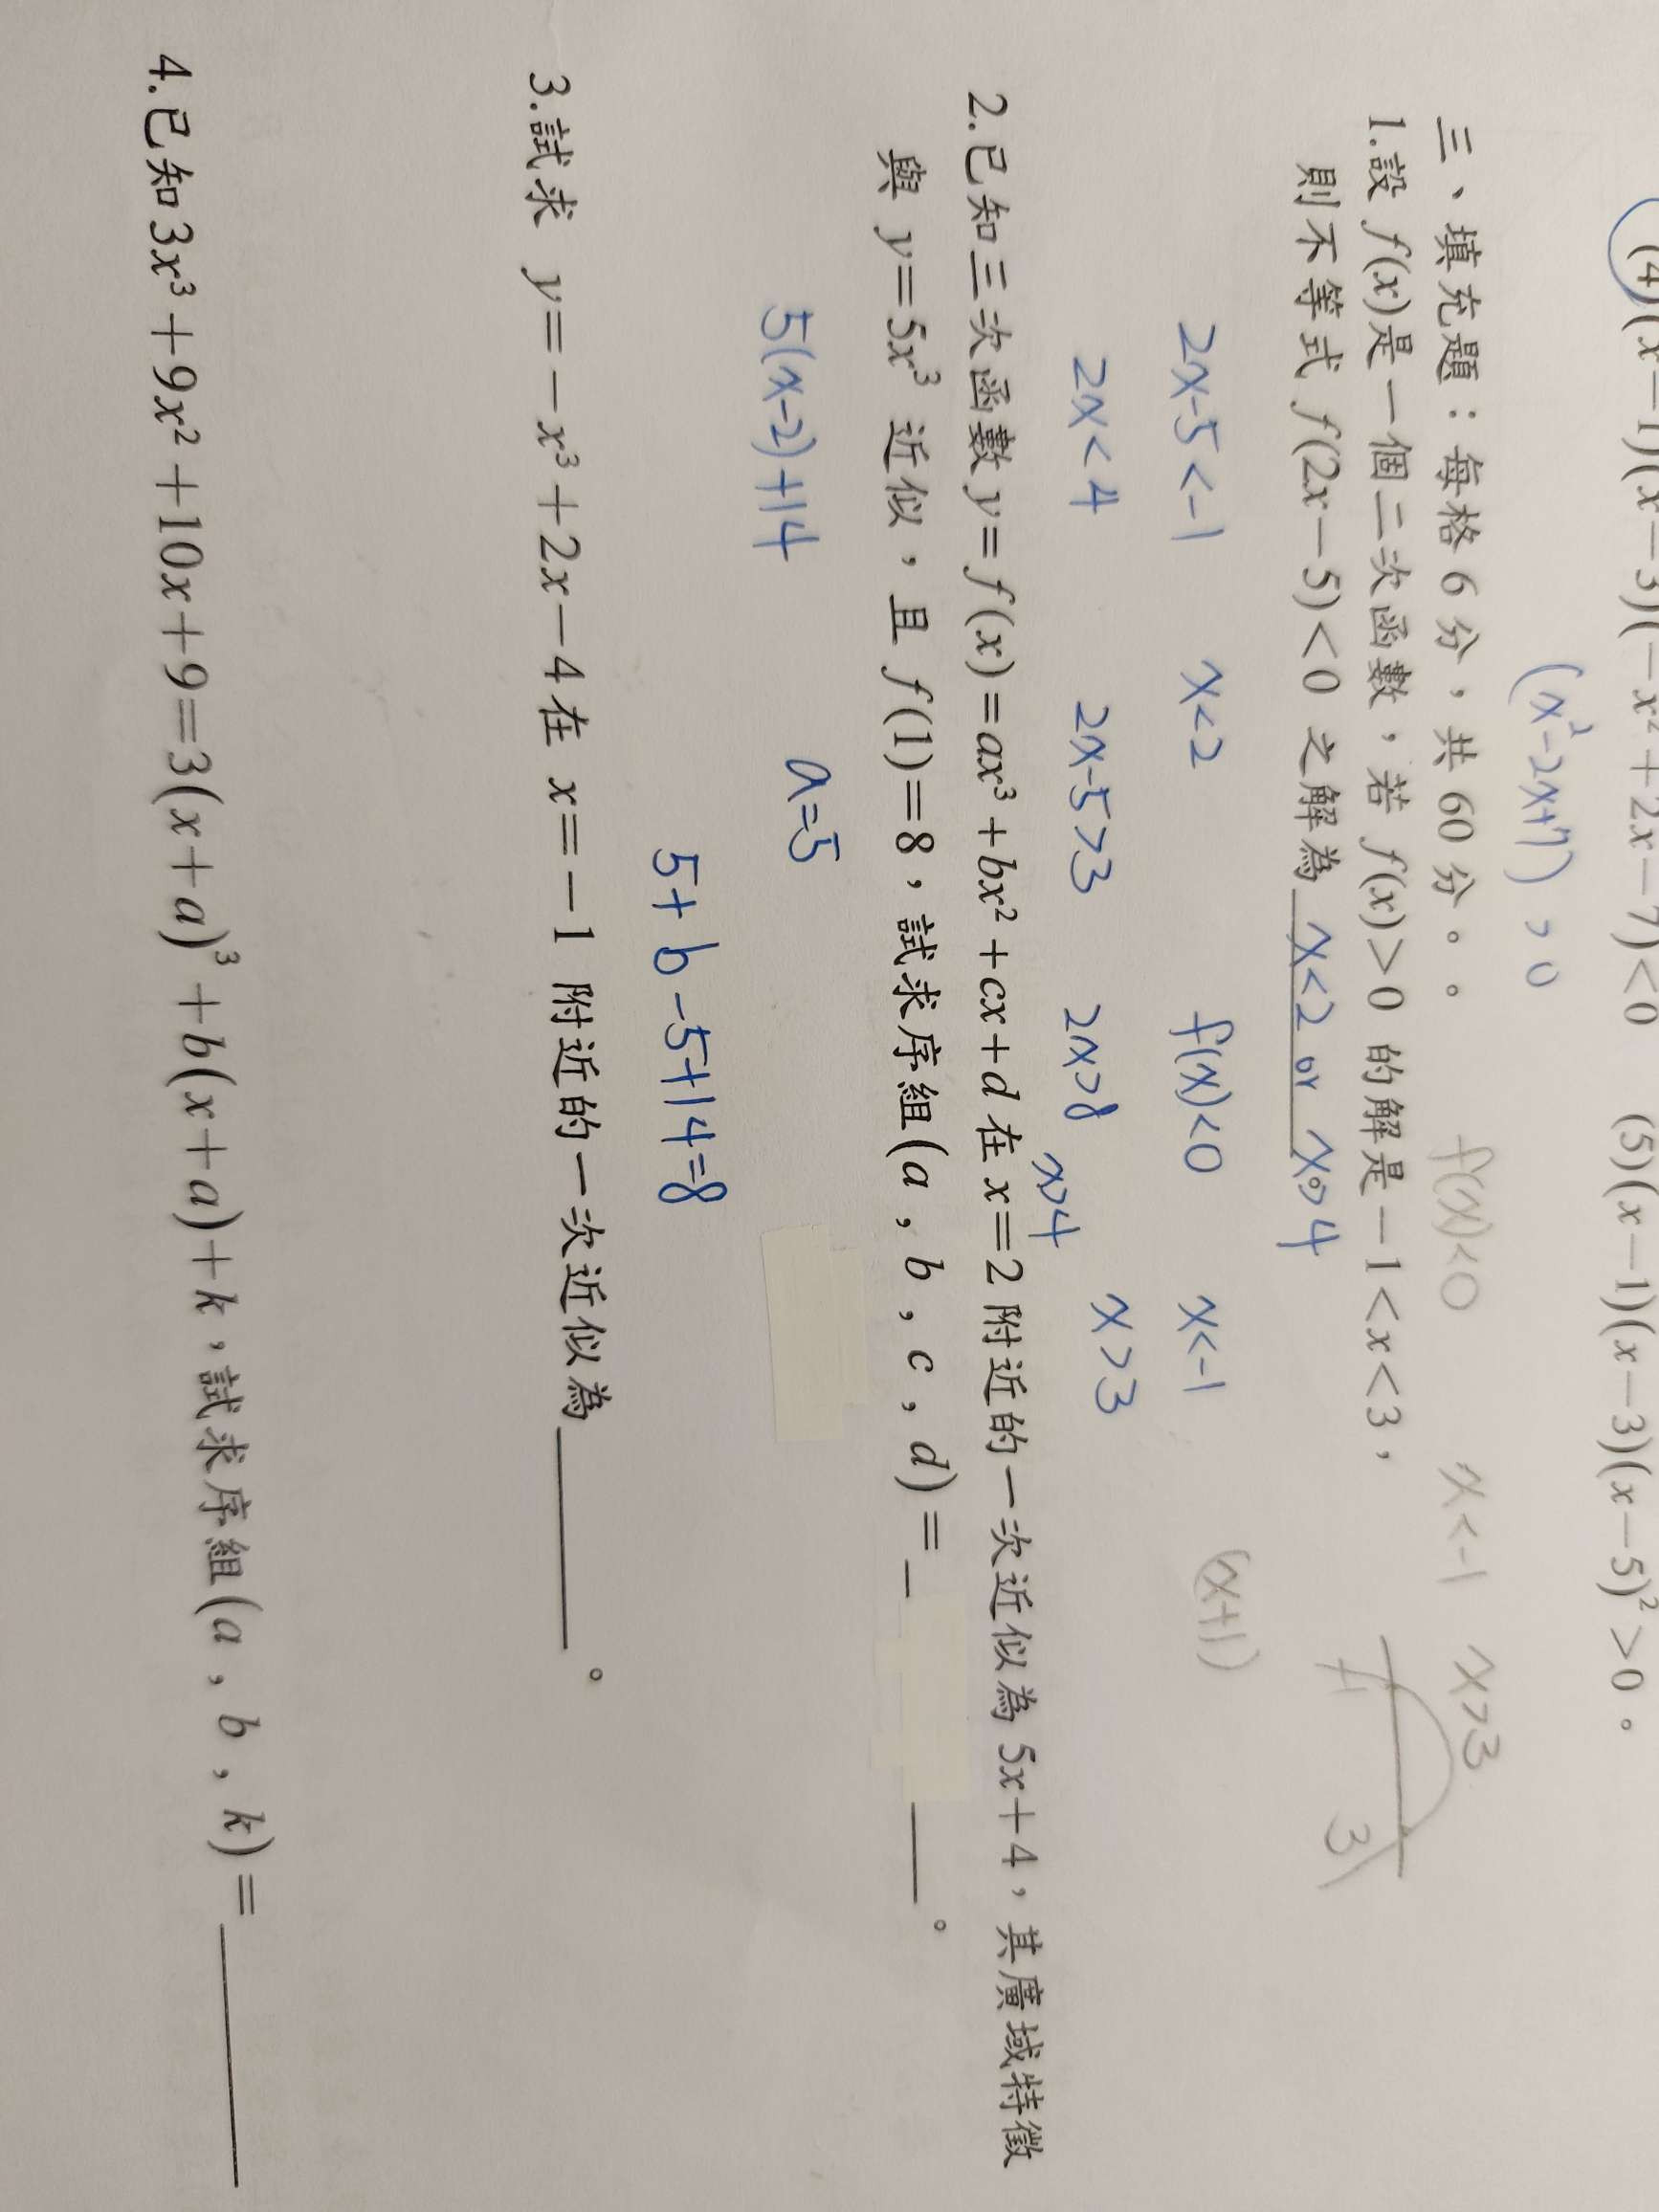 (4)(x−1)(x−3)(−x²+2x−7)<0 (5)(x−1)(x−3)(x−5)²>0。
(x²-2x+7)>0
三、填充題：每格6分，共60分。。
f(x)<0 x<-1 x>3
1.設 f(x)是一個二次函數，若 f(x)>0 的解是−1<x<3，
則不等式 f(2x−5)<0 之解為 x<2 or x>4 。
-1 3
2x-5<-1 x<2 f(x)<0 x<-1 (x+1)
2x<4 2x-5>3 2x>8 x>4 x>3
2.已知三次函數y=f(x)=ax³+bx²+cx+d在x=2附近的一次近似為5x+4，其廣域特徵
與 y=5x³ 近似，且 f(1)=8，試求序組(a，b，c，d)=＿＿。
5(x-2)+14 a=5
5+b-5+14=8
3.試求 y=−x³+2x−4在 x=−1 附近的一次近似為＿＿＿＿。
4.已知3x³+9x²+10x+9=3(x+a)³+b(x+a)+k，試求序組(a，b，k)=＿＿＿＿